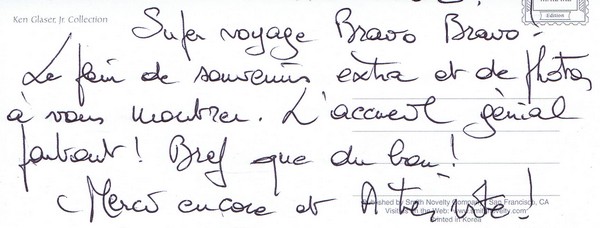 Ken Glaser, Jr. Collection
Edition
Super voyage Bravo Bravo!
Le plein de souvenirs extra et de photos
à vous montrer. L'accueil génial
partout! Bref que du bon!
Merci encore et A très vite!
Published by Smith Novelty Company, San Francisco, CA
Visit us on the Web: www.smithnovelty.com
Printed in Korea